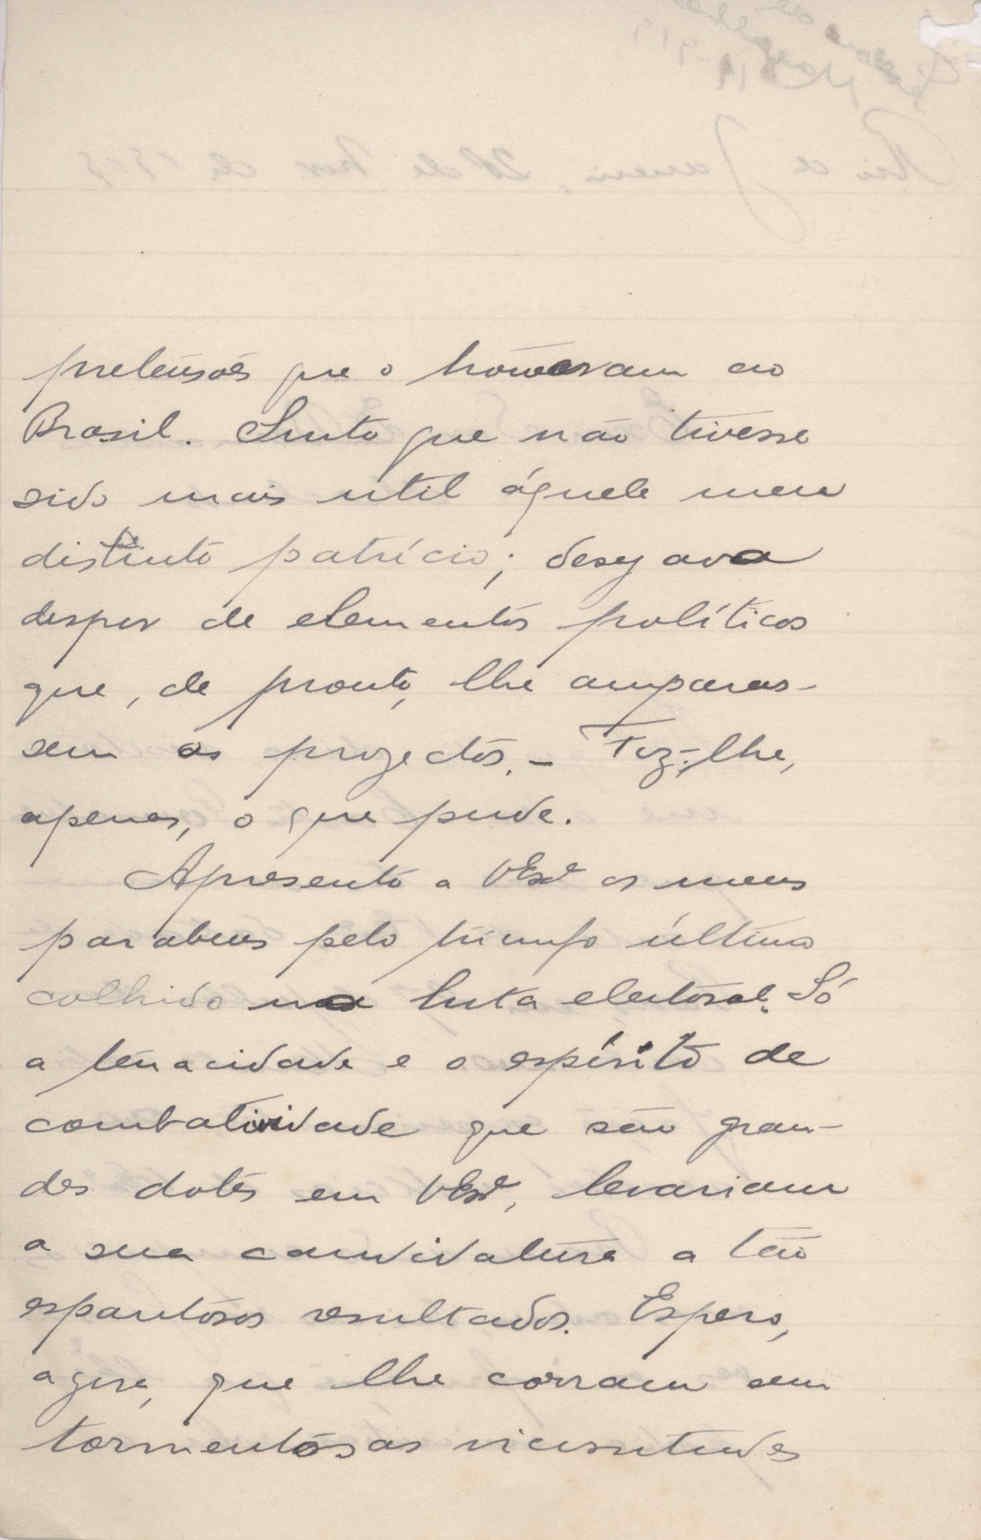 pretensões que o trouxeram ao
Brasil. Sinto que não tivesse
sido mais util áquele meu
distinto patrício; desejava
dispor de elementos políticos
que, de pronto, lhe amparas-
sem os projectos. - Fiz-lhe,
apenas, o que pude.
Apresento a VExª os meus
parabens pelo triumfo último
colhido na luta eleitoral. Só
a tenacidade e o espírito de
combatividade que são gran-
des dotes em VExª, levariam
a sua candidatura a tão
espantosos resultados. Espero,
agora, que lhe corram sem
tormentosas vicissitudes